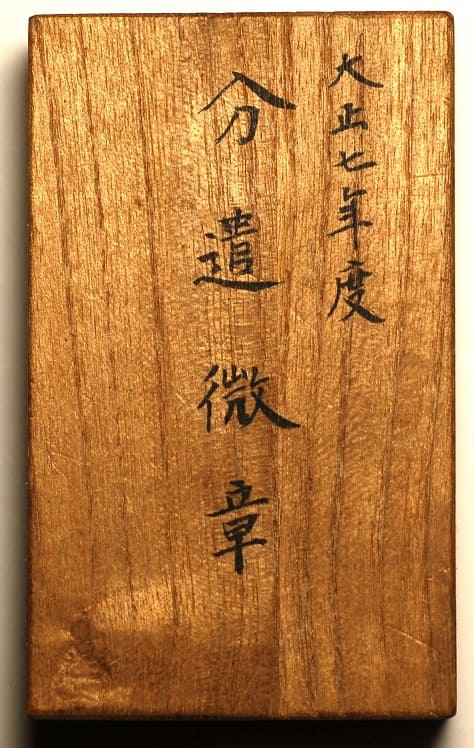 大正七年度
分遣徽章